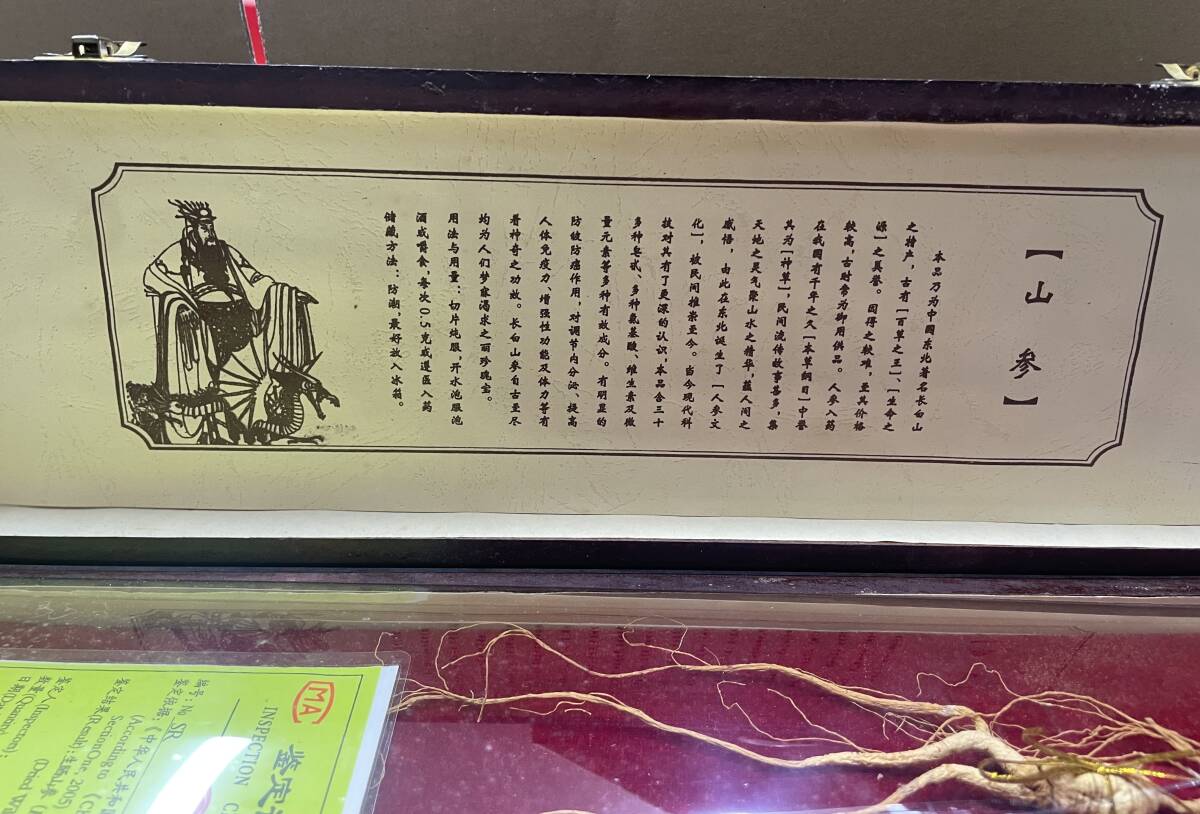 【山参】
本品乃为中国东北著名长白山
之特产，古有[百草之王]、[生命之
源]之美誉。因得之较难，至其价格
较高，古时常为御用供品。人参入药
在我国有千年之久[本草纲目]中誉
其为[神草]，民间流传故事甚多，集
天地之灵气聚山水之精华，蕴人间之
感悟，由此在东北诞生了[人参文
化]，被民间推崇至今。当今现代科
技对其有了更深的认识，本品含三十
多种皂甙、多种氨基酸、维生素及微
量元素等多种有效成分。有明显的
防皱防癌作用，对调节内分泌、提高
人体免疫力、增强性功能及体力等有
着神奇之功效。长白山参自古至尽
均为人们梦寐渴求之丽珍瑰宝。
用法与用量：切片炖服，开水泡服泡
酒或嚼食，每次0.5克或遵医入药
储藏方法：防潮，最好放入冰箱。
MA
鉴定
INSPECTION C
编号：No SR
鉴定依据：《中华人民共和国
(According to 《Ch
SectionOne, 2005)
鉴定结果(Result)：生晒山参(
(Dried Wil
数量(Quantum)：
鉴定人(Inspector)：
日期(Date)